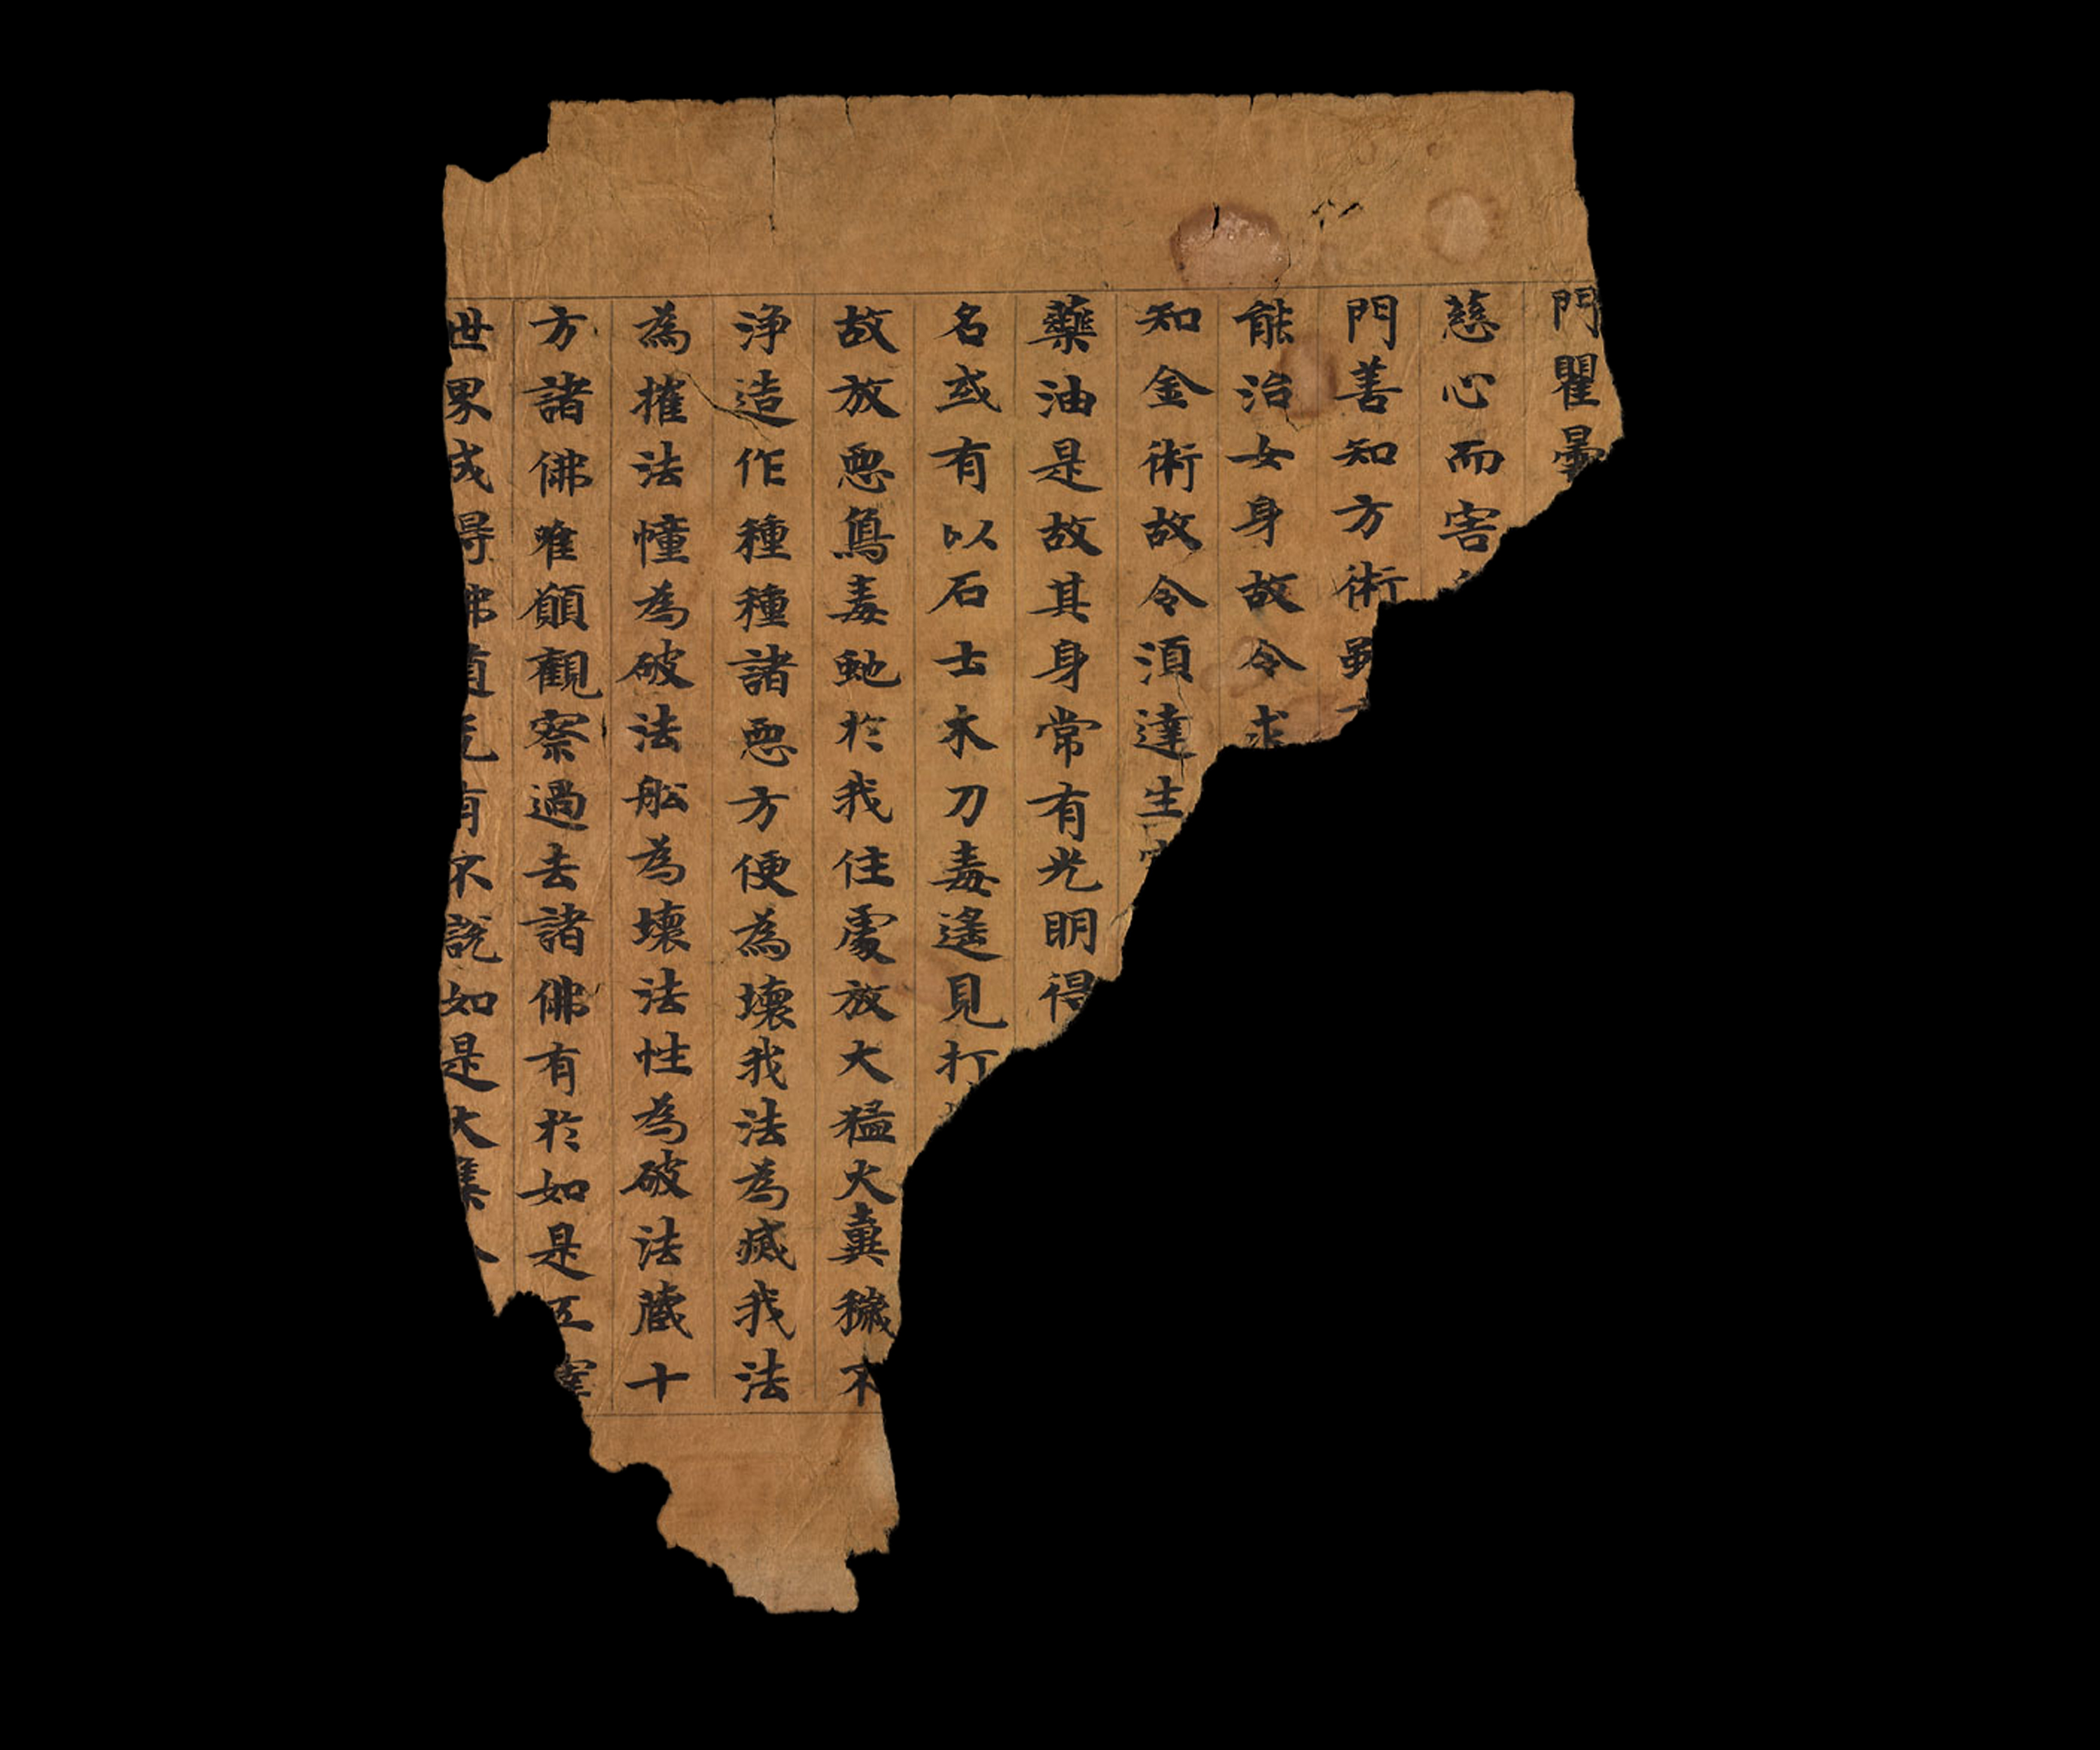 門瞿曇
慈心而害
門善知方術雖
能治女身故令求
知金術故令湏達生
藥油是故其身常有光明得
名或有以石士木刀毒遙見打
故放惡鳥毒虵於我住處放大猛火糞穢不
淨造作種種諸惡方便為壞我法為滅我法
為摧法幢為破法舩為壞法性為破法蔵十
方諸佛唯願觀察過去諸佛有於如是五
世界成得佛道克有不說如是大集